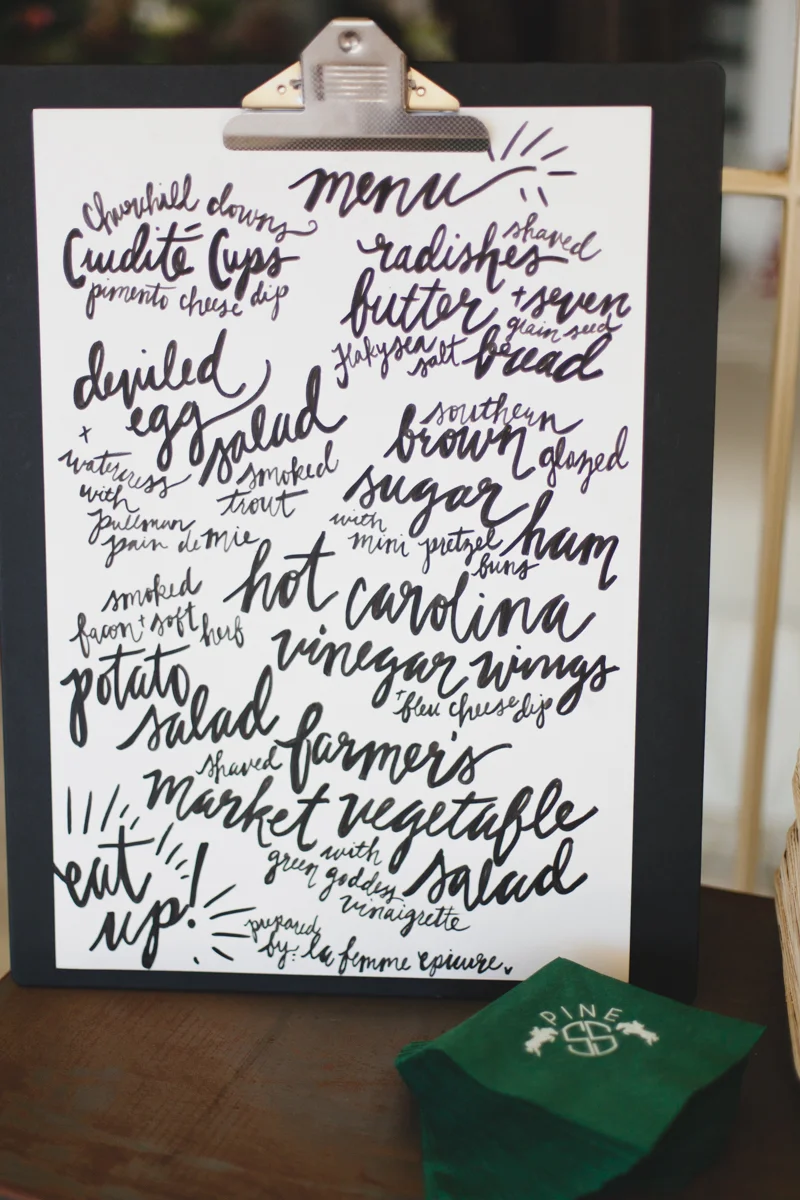 menu
Churchill downs
Crudité Cups
pimento cheese dip
deviled
egg salad
+ smoked
watercress trout
with
pullman
pain de mie
shaved
radishes
butter + seven
grain seed
flaky sea
salt bread
southern
brown glazed
sugar
ham
with
mini pretzel
buns
smoked
bacon + soft herb
potato
salad
hot carolina
vinegar wings
+ bleu cheese dip
shaved farmer's
market vegetable
salad
with
green goddess
vinaigrette
eat
up!
prepared
by: la femme epicure.
PINE
SS